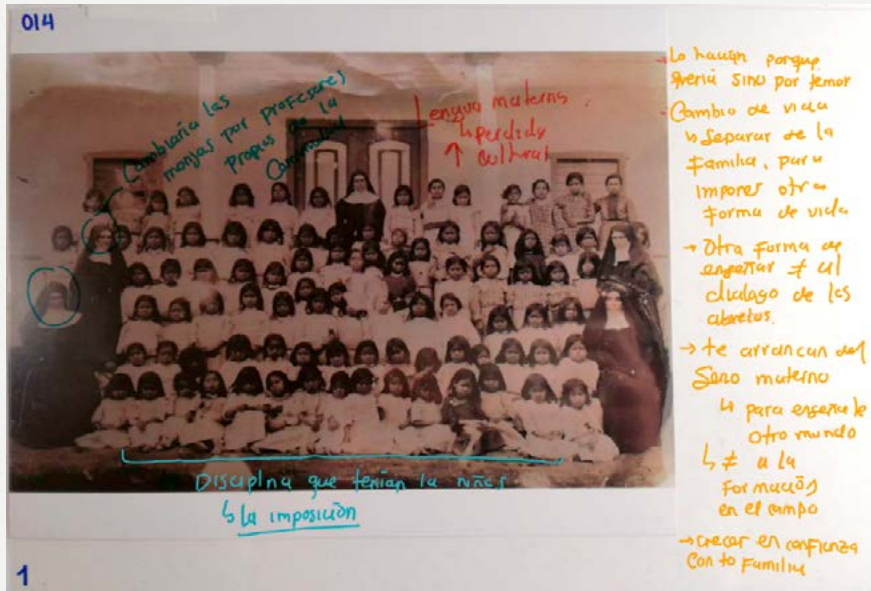 014
Cambiaría las
monjas por profesores
propios de la
Comunidad
Lengua materna
↳ perdida
↑ cultural
Disciplna que tenían la niñas
↳ la imposición
1
Lo hacían porque
quería sino por temor
- Cambio de vida
↳ Separar de la
familia, para
imponer otra
forma de vida
→ Otra forma de
enseñar ≠ al
dialogo de los
abuelos.
→ te arrancan del
Seno materno
↳ para enseñarle
otro mundo
↳ ≠ a la
Formación
en el campo
→ crecer en confianza
Con tu Familia